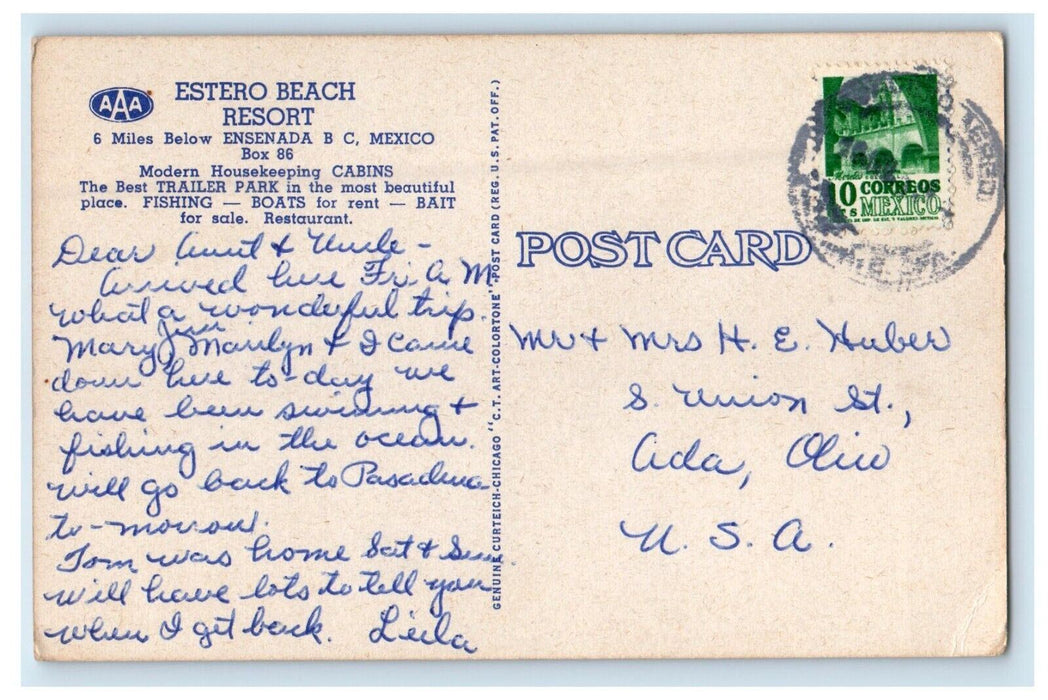 AAA
ESTERO BEACH
RESORT
6 Miles Below ENSENADA B C, MEXICO
Box 86
Modern Housekeeping CABINS
The Best TRAILER PARK in the most beautiful
place. FISHING — BOATS for rent — BAIT
for sale. Restaurant.
Dear Aunt & Uncle -
Arrived here Fri. A M
what a wonderful trip.
Mary Jim Marilyn & I came
down here to-day we
have been swimming &
fishing in the ocean.
will go back to Pasadena
to-morow.
Tom was home Sat & Sun
will have lots to tell you
when I get back. Leila
GENUINE CURTEICH-CHICAGO "C.T. ART-COLORTONE" POST CARD (REG. U.S. PAT. OFF.)
POST CARD
10 CORREOS
MEXICO
Mr & Mrs H. E. Huber
S. Union St.,
Ada, Ohio
U. S. A.